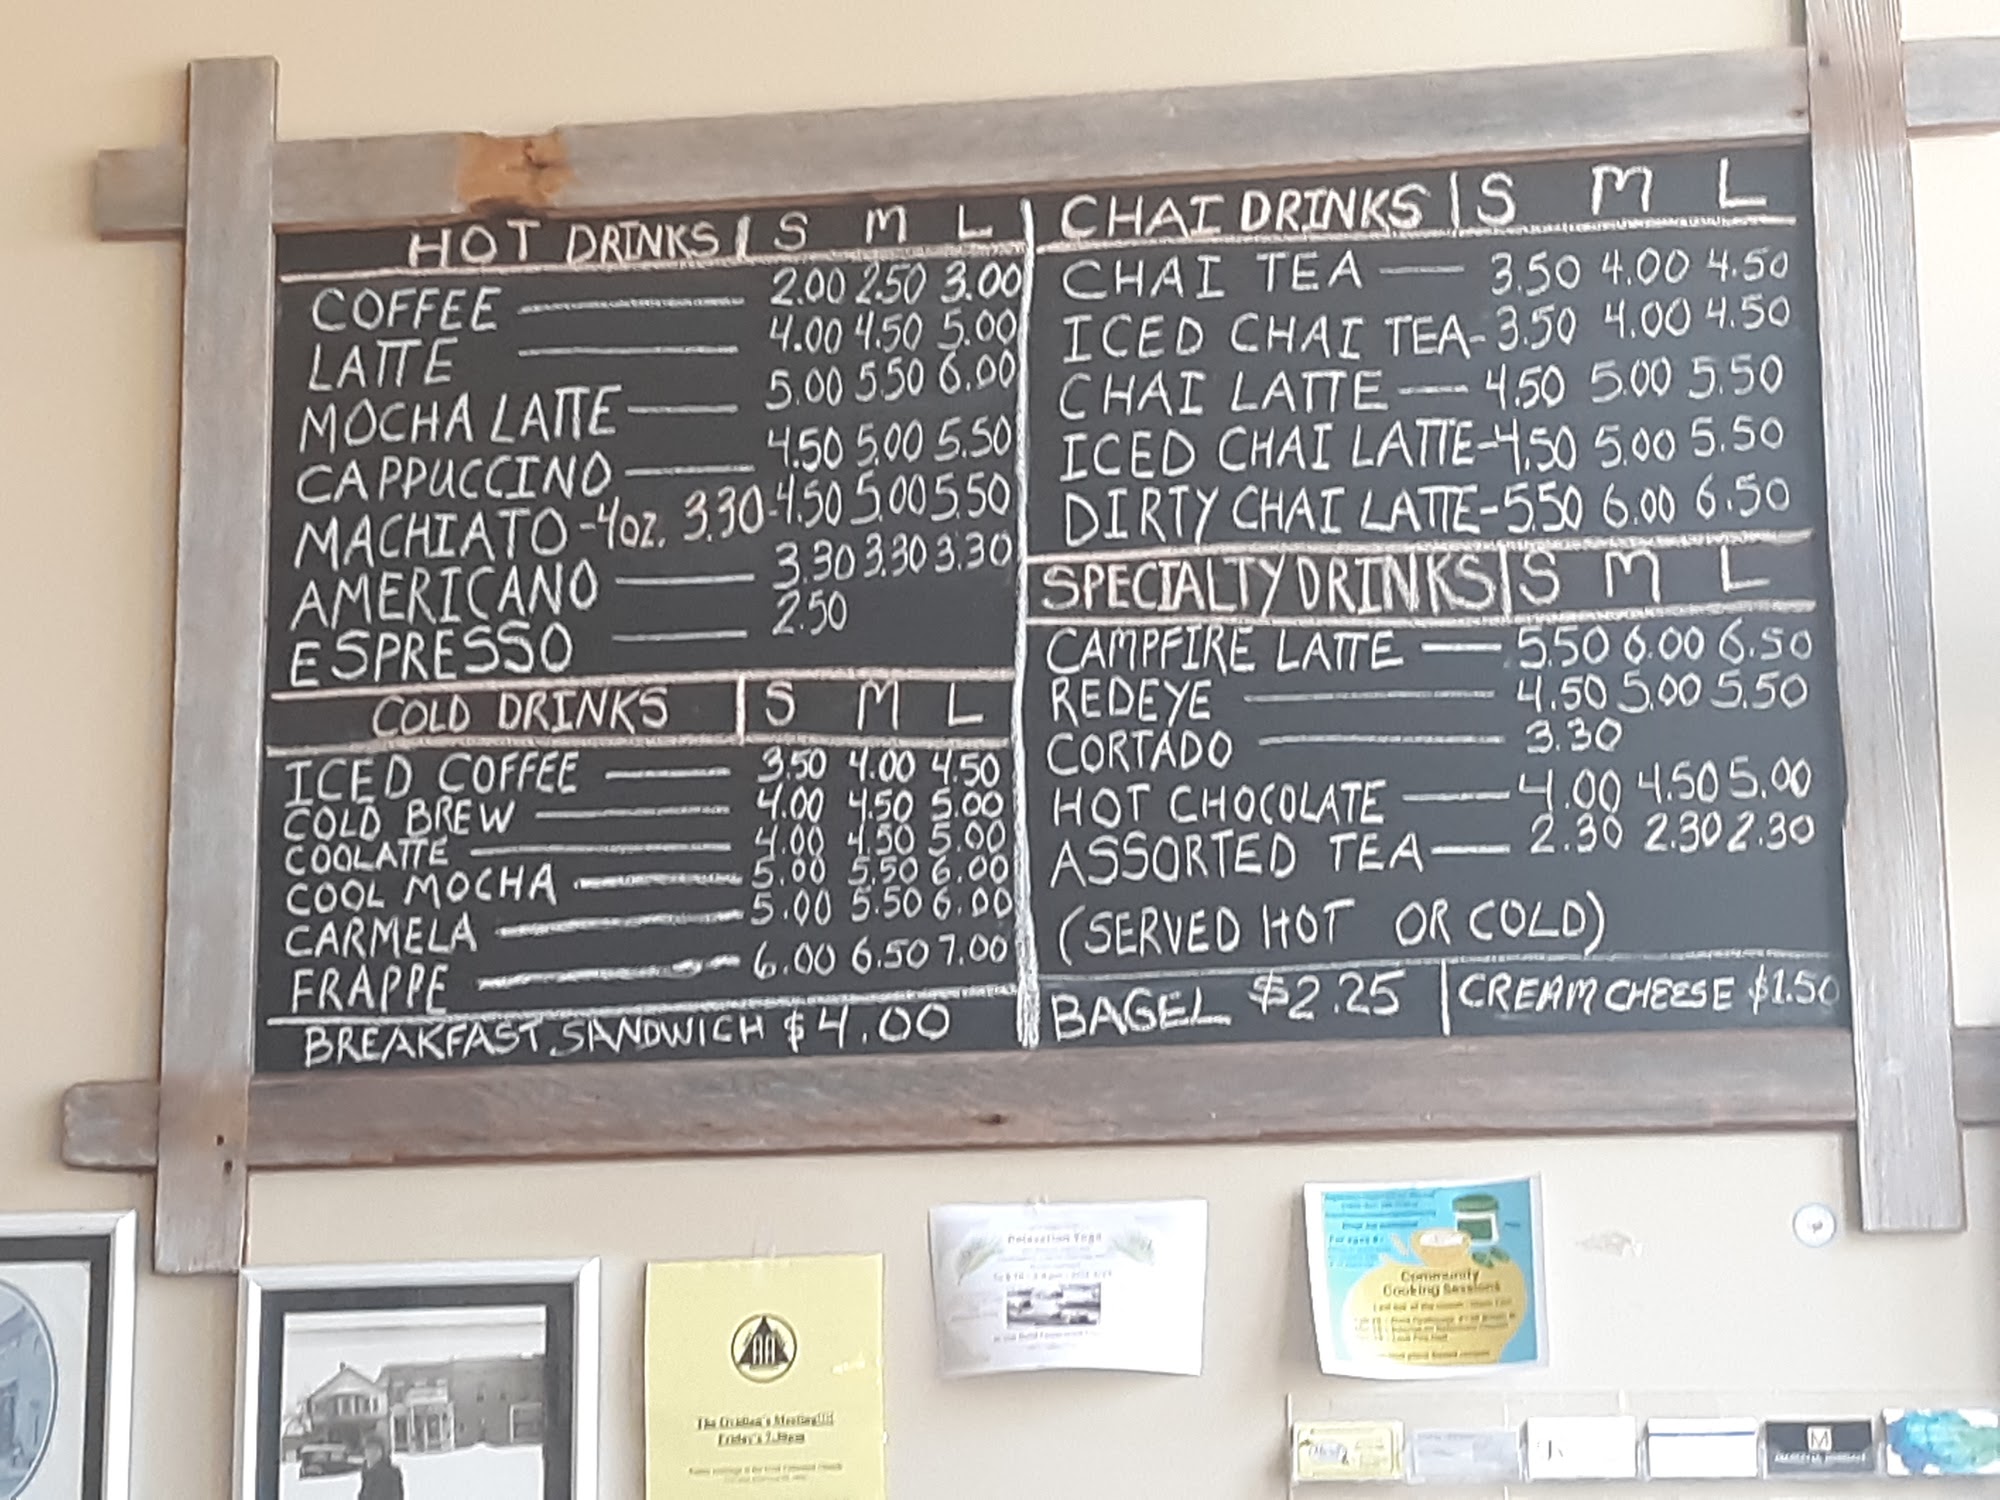 HOT DRINKS | S M L
COFFEE 2.00 2.50 3.00
LATTE 4.00 4.50 5.00
MOCHA LATTE 5.00 5.50 6.00
CAPPUCCINO 4.50 5.00 5.50
MACHIATO - 4oz. 3.30 - 4.50 5.00 5.50
AMERICANO 3.30 3.30 3.30
ESPRESSO 2.50
COLD DRINKS | S M L
ICED COFFEE 3.50 4.00 4.50
COLD BREW 4.00 4.50 5.00
COOLATTE 4.00 4.50 5.00
COOL MOCHA 5.00 5.50 6.00
CARMELA 5.00 5.50 6.00
FRAPPE 6.00 6.50 7.00
BREAKFAST SANDWICH $4.00
CHAI DRINKS | S M L
CHAI TEA — 3.50 4.00 4.50
ICED CHAI TEA - 3.50 4.00 4.50
CHAI LATTE — 4.50 5.00 5.50
ICED CHAI LATTE - 4.50 5.00 5.50
DIRTY CHAI LATTE - 5.50 6.00 6.50
SPECIALTY DRINKS | S M L
CAMPFIRE LATTE — 5.50 6.00 6.50
REDEYE 4.50 5.00 5.50
CORTADO 3.30
HOT CHOCOLATE — 4.00 4.50 5.00
ASSORTED TEA — 2.30 2.30 2.30
(SERVED HOT OR COLD)
BAGEL $2.25 | CREAM CHEESE $1.50
Relaxation Yoga
Community
Cooking Sessions
AA
Friday's 7:30pm
M